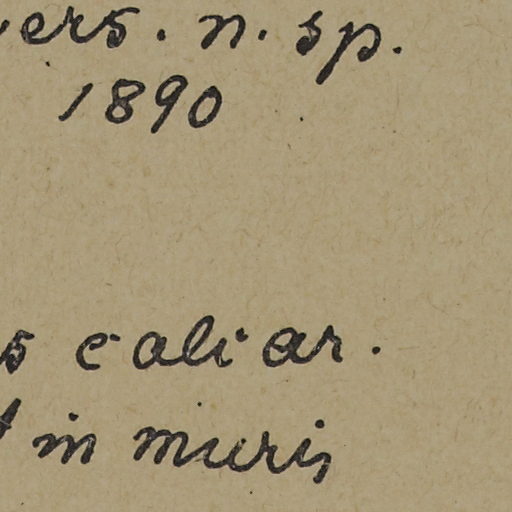 vers. n. sp.
1890
s calcar.
t in muris